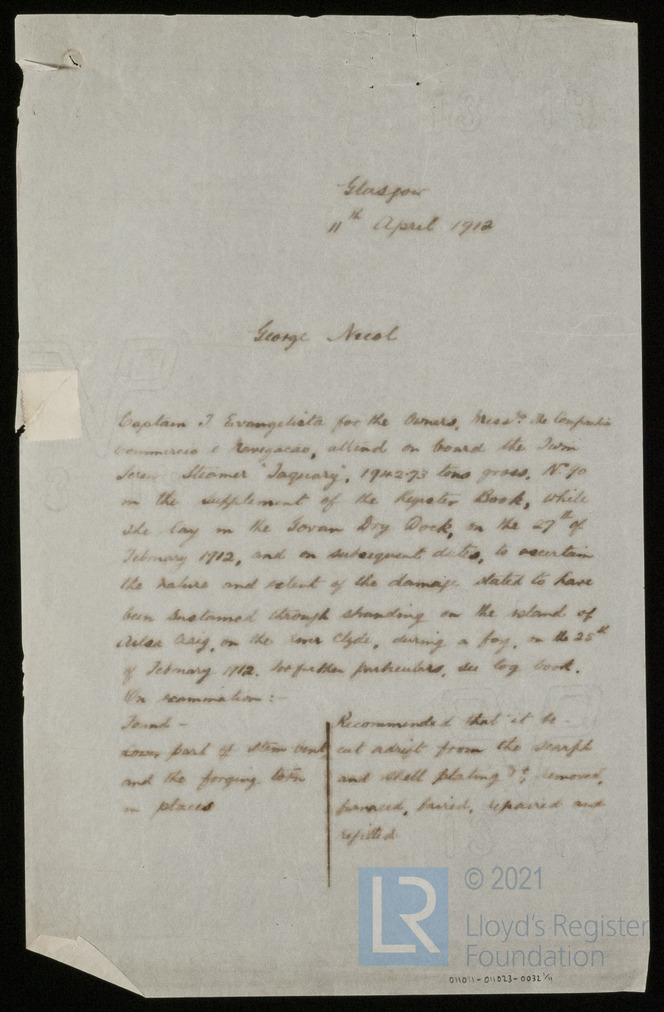 Glasgow
11th April 1912
George Nicol
Captain J Evangelista for the Owners, Messrs. De Companhia
Commercio e Navegacao, attend on board the Twin
Screw Steamer "Taquary", 1942.73 tons gross, No 90
in the supplement of the Register Book, while
she lay in the Govan Dry Dock, on the 27th of
February 1912, and on subsequent dates, to ascertain
the nature and extent of the damage stated to have
been sustained through stranding on the island of
Ailsa Craig, on the river Clyde, during a fog, on the 25th
of February 1912. For further particulars, see log book.
On examination:-
Found -
Lower part of stem bent,
and the forging torn
in places
Recommended that it be -
cut adrift from the scarph
and shell plating &c, removed,
furnaced, faired, repaired and
refitted
LR
© 2021
Lloyd's Register
Foundation
011011-011023-0032 1/11